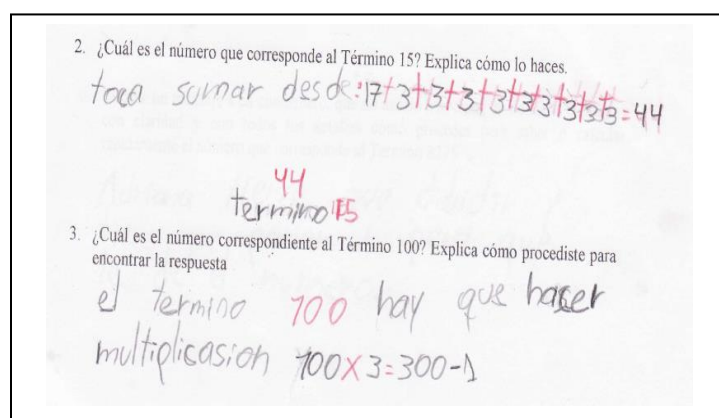 2. ¿Cuál es el número que corresponde al Término 15? Explica cómo lo haces.
toca sumar desde:17+3+3+3+3+3+3+3+3+3=44
44
termino 15
3. ¿Cuál es el número correspondiente al Término 100? Explica cómo procediste para
encontrar la respuesta
el termino 100 hay que hacer
multiplicasion 100x3=300-1